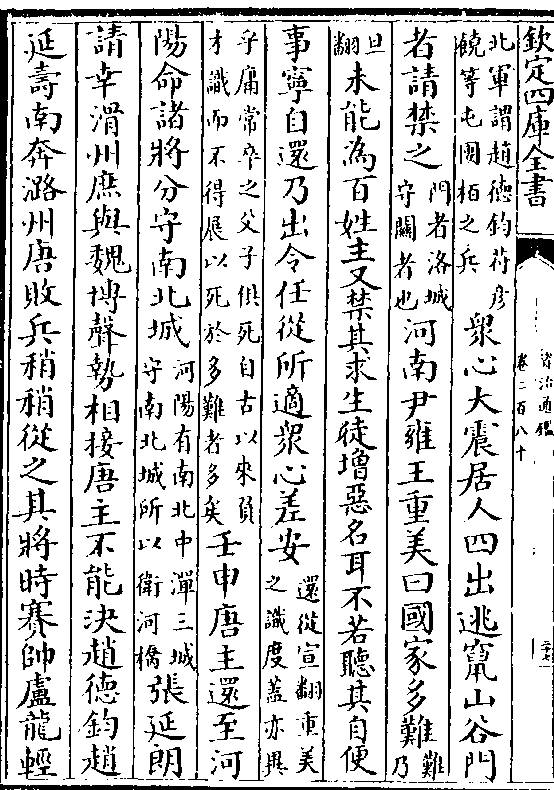 欽定四庫全書
資治通鑑
卷二百八十
北軍謂趙德鈞苻彥
饒等屯團栢之兵
衆心大震居人四出逃竄山谷門
者請禁之
門者洛城
守關者也
河南尹雍王重美曰國家多難
難
乃
旦
翻
未能為百姓主又禁其求生徒增惡名耳不若聽其自便
事寧自還乃出令任從所適衆心差安
還從宣翻重美
之識度蓋亦異
乎庸常卒之父子俱死自古以來負
才識而不得展以死於多難者多矣
壬申唐主還至河
陽命諸將分守南北城
河陽有南北中潬三城
守南北城所以衛河橋
張延朗
請幸滑州庶與魏博聲勢相接唐主不能決趙德鈞趙
延壽南奔潞州唐敗兵稍稍從之其將時賽帥盧龍輕